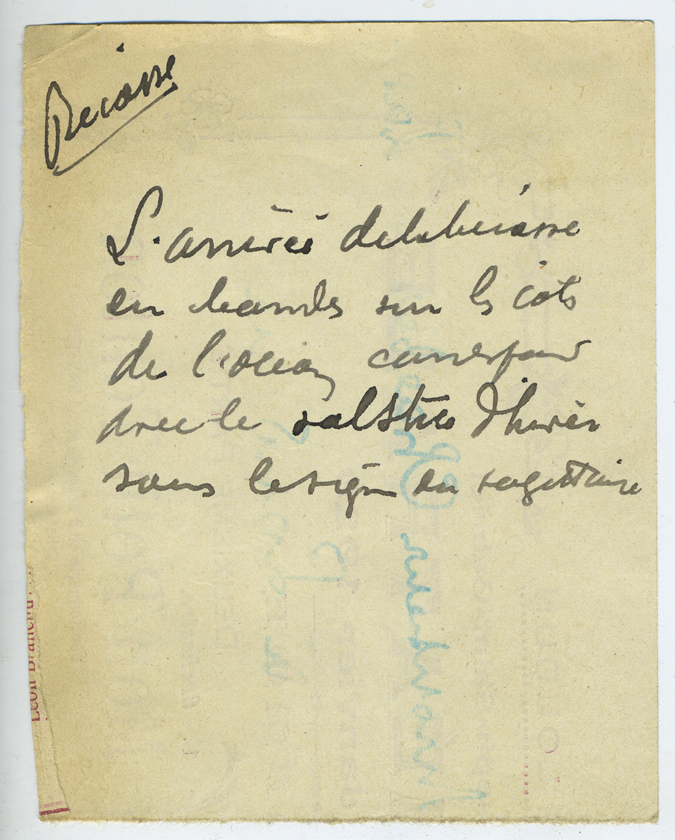 Bécasse
L'arrivée de la bécasse
en bandes sur les côtes
de l'océan
avec le solstice d'hiver
sous le signe du sagittaire